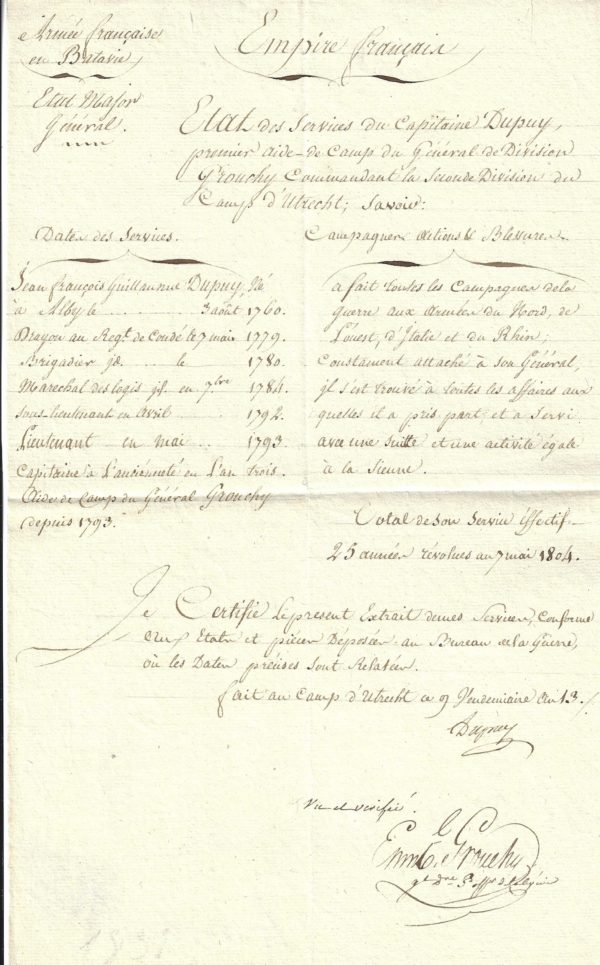 Armée française
en Batavie
Empire français
Etat Major
Général.
Etat des Services du Capitaine Dupuy,
premier aide-de Camp du Général de Division
Grouchy Commandant la Seconde Division du
Camp d'Utrecht; Savoir:
Dates des Services.
Campagnes actions & Blessures.
Jean françois Guillaumme Dupuy, Né
à Alby le 3 août 1760.
Dragon au Regt. de Condé le 7 mai 1779.
Brigadier id. le 1780.
Marechal des logis id. en 7bre 1784.
Sous-lieutenant en Avril 1792.
Lieutenant en mai 1793
Capitaine à L'ancienneté en L'an trois.
Aide de Camp du Général Grouchy
depuis 1793.
a fait toutes les Campagnes de la
guerre aux armées du Nord, de
L'ouest, d'Italie et du Rhin;
Constament attaché à son Général,
il s'est trouvé à toutes les affaires aux
quelles il a pris part et a Servi
avec une suitte et une activité égale
à la Sienne.
Total de Son Service Effectif
25 années révolues au 7 mai 1804.
Je Certifie le présent Extrait de mes Services, Conforme
aux Etats et pièces Déposées au Bureau de la Guerre,
où les Dates précises Sont Relatées.
fait au Camp d'Utrecht ce 9 Vendemiaire An 13.
Dupuy
Vu et verifié.
Grouchy